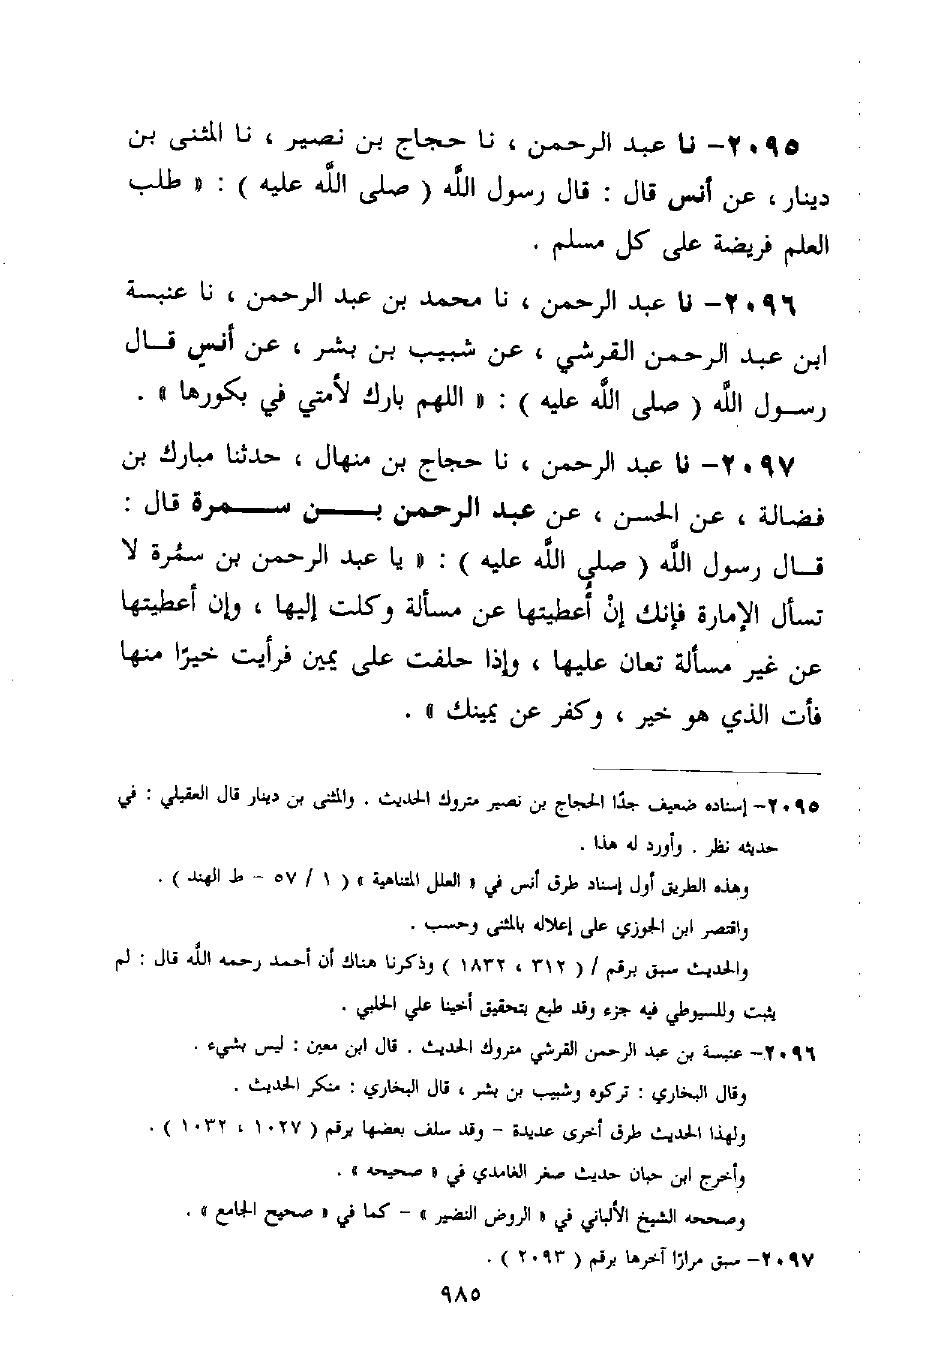 ٢٠٩٥- نا عبد الرحمن ، نا حجاج بن نصير ، نا المثنى بن
دينار ، عن أنس قال : قال رسول الله ( صلى الله عليه ) : « طلب
العلم فريضة على كل مسلم .
٢٠٩٦- نا عبد الرحمن ، نا محمد بن عبد الرحمن ، نا عنبسة
ابن عبد الرحمن القرشي ، عن شبيب بن بشر ، عن أنسٍ قــال
رســول الله ( صلى الله عليه ) : « اللهم بارك لأمتي في بكورها » .
٢٠٩٧- نا عبد الرحمن ، نا حجاج بن منهال ، حدثنا مبارك بن
فضالة ، عن الحسن ، عن عبد الرحمن بــــن ســـــمرة قال :
قــال رسول الله ( صلى الله عليه ) : « يا عبد الرحمن بن سمُرة لا
تسأل الإمارة فإنك إنْ أُعطيتها عن مسألة وكلت إليها ، وإن أعطيتها
عن غير مسألة تعان عليها ، وإذا حلفت على يمين فرأيت خيرًا منها
فأت الذي هو خير ، وكفر عن يمينك » .
٢٠٩٥- إسناده ضعيف جدًا الحجاج بن نصير متروك الحديث . والمثنى بن دينار قال العقيلي : في
حديثه نظر . وأورد له هذا .
وهذه الطريق أول إسناد طرق أنس في « العلل المتناهية » ( ١ / ٥٧ - ط الهند ) .
واقتصر ابن الجوزي على إعلاله بالمثنى وحسب .
والحديث سبق برقم / ( ٣١٢ ، ١٨٣٢ ) وذكرنا هناك أن أحمد رحمه الله قال : لم
يثبت وللسيوطي فيه جزء وقد طبع بتحقيق أخينا علي الحلبي .
٢٠٩٦- عنبسة بن عبد الرحمن القرشي متروك الحديث . قال ابن معين : ليس بشيء .
وقال البخاري : تركوه وشبيب بن بشر ، قال البخاري : منكر الحديث .
ولهذا الحديث طرق أخرى عديدة - وقد سلف بعضها برقم ( ١٠٢٧ ، ١٠٣٢ ) .
وأخرج ابن حبان حديث صخر الغامدي في « صحيحه » .
وصححه الشيخ الألباني في « الروض النضير » - كما في « صحيح الجامع » .
٢٠٩٧- سبق مرارًا آخرها برقم ( ٢٠٩٣ ) .
٩٨٥